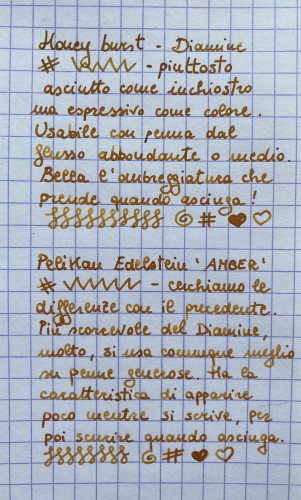 Honey burst - Diamine
# - piuttosto
asciutto come inchiostro
ma espressivo come colore.
Usabile con penna dal
flusso abbondante o medio.
Bella l'ombreggiatura che
prende quando asciuga!
Pelikan Edelstein 'AMBER'
# - cerchiamo le
differenze con il precedente.
Più scorrevole del Diamine,
molto, si usa comunque meglio
su penne generose. Ha la
caratteristica di apparire
poco mentre si scrive, per
poi scurire quando asciuga.